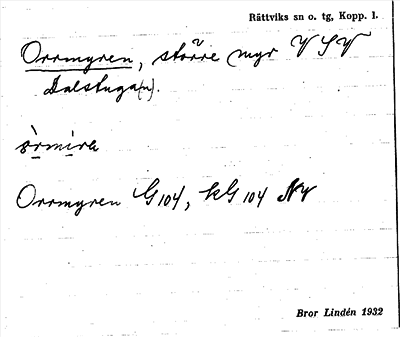 Rättviks sn o. tg, Kopp. l.
Orrmyren, större myr VSV
Dalstuga(n).
Orrmyren G104, kG 104 NV
Bror Lindén 1932